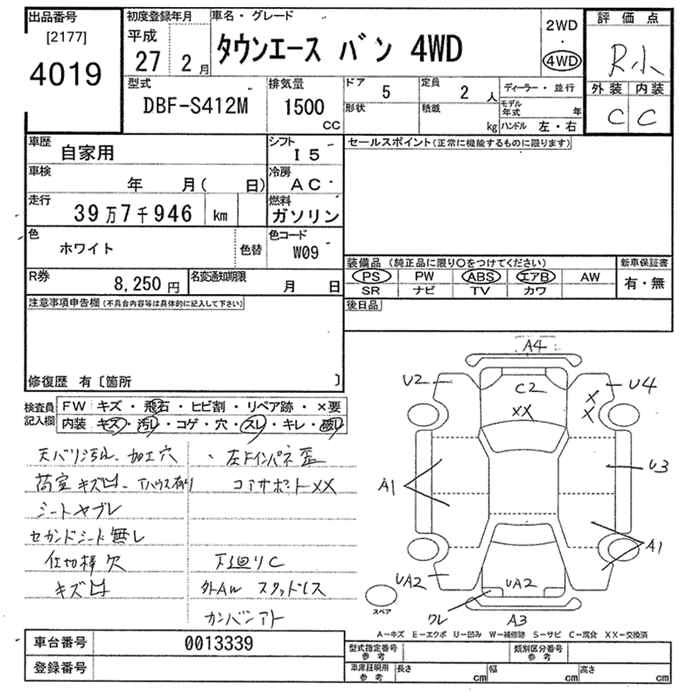 出品番号
[2177]
4019
初度登録年月
平成
27 2月
車名・グレード
タウンエース バン 4WD
2WD
・
4WD
評価点
R小
外装 内装
C C
型式
DBF-S412M
排気量
1500
CC
ドア
5
定員
2 人
形状
積載
kg
ディーラー・並行
モデル年式 年
ハンドル 左・右
車歴
自家用
シフト
I5
車検
年 月( 日)
冷房
AC
走行
39万7千946 km
燃料
ガソリン
色
ホワイト
色替
色コード
W09
R券
8,250 円
名変通知期限
月 日
セールスポイント(正常に機能するものに限ります)
装備品 (純正品に限り○をつけてください)
新車保証書
PS PW ABS エアB AW
SR ナビ TV カワ
有・無
後日品
注意事項申告欄(不具合内容等は具体的に記入して下さい)
修復歴 有〔箇所 〕
検査員記入欄
FW キズ・飛石・ヒビ割・リペア跡・×要
内装 キズ・汚レ・コゲ・穴・スレ・キレ・破レ
天バリ汚れ、加工穴
・左ドインパネ歪
荷室キズ凹
コアサポートXX
シートヤブレ
セカンドシート無し
仕切棒欠
下廻りC
キズ凹
外AW スタッドレス
カンバンアト
A4
U2
C2
XX
X
X
U4
A1
U3
A1
UA2
UA2
ワレ
A3
スペア
A－キズ E－エクボ U－凹み W－補修跡 S－サビ C－腐食 XX－交換済
車台番号
0013339
登録番号
型式指定番号
参考
類別区分番号
参考
車庫証明用
参考
長さ cm
幅 cm
高さ cm